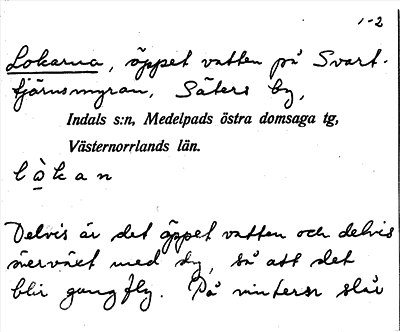 1-2
Lokarna, öppet vatten på Svart-
tjärnsmyran, Säters by,
Indals s:n, Medelpads östra domsaga tg,
Västernorrlands län.
lò̱kan
Delvis är det öppet vatten och delvis
överväxt med dy, så att det
blir gungfly. På vintern slår